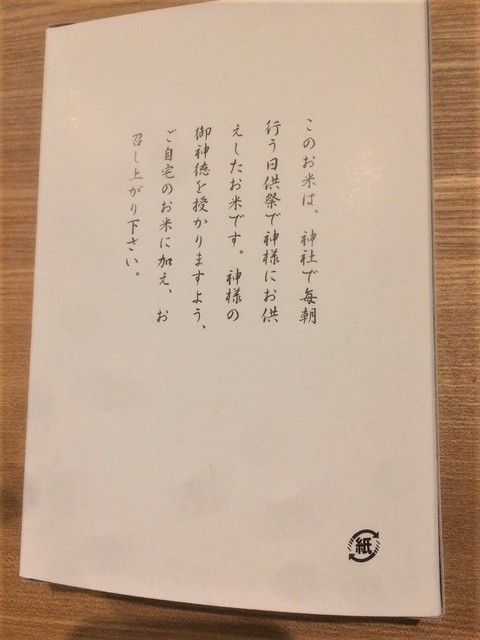 このお米は、神社で毎朝
行う日供祭で神様にお供
えしたお米です。神様の
御神徳を授かりますよう、
ご自宅のお米に加え、お
召し上がり下さい。
紙